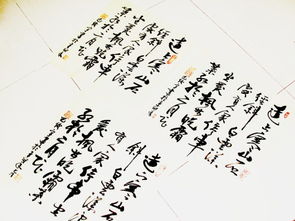 遠上寒山石
徑斜白雲深
處有人家停車
坐愛楓林晚霜
葉紅於二月花
遠上寒山石
徑斜白雲深
處有人家停車
坐愛楓林晚霜
葉紅於二月花
遠上寒山石徑
斜白雲深處
有人家停車坐
愛楓林晚霜葉
紅於二月花